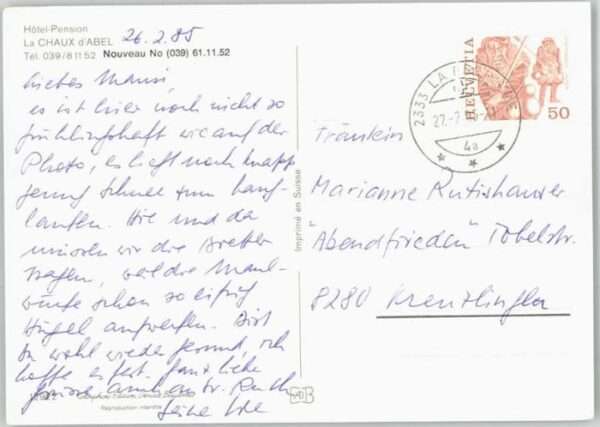 Hôtel-Pension
La CHAUX d'ABEL
Tél. 039/8 11 52 Nouveau No (039) 61.11.52
26.2.85
Liebes Mausi,
es ist hier noch nicht so
frühlingshaft wie auf der
Photo, es liegt noch knapp
genug Schnee zum Lang-
laufen. Hie und da
müssen wir die Bretter
tragen, weil die Maul-
würfe schon so eifrig
Hügel aufwerfen. Bist
Du wohl wieder gesund, ich
hoffe es fest. Ganz liebe
Grüsse, auch an Fr. Ruth
Deine
Reproduction interdite
Imprimé en Suisse
HELVETIA
50
2333 LA
4a
Fräulein
Marianne Rutishauser
"Abendfrieden" Tobelstr.
8280 Kreuzlingen